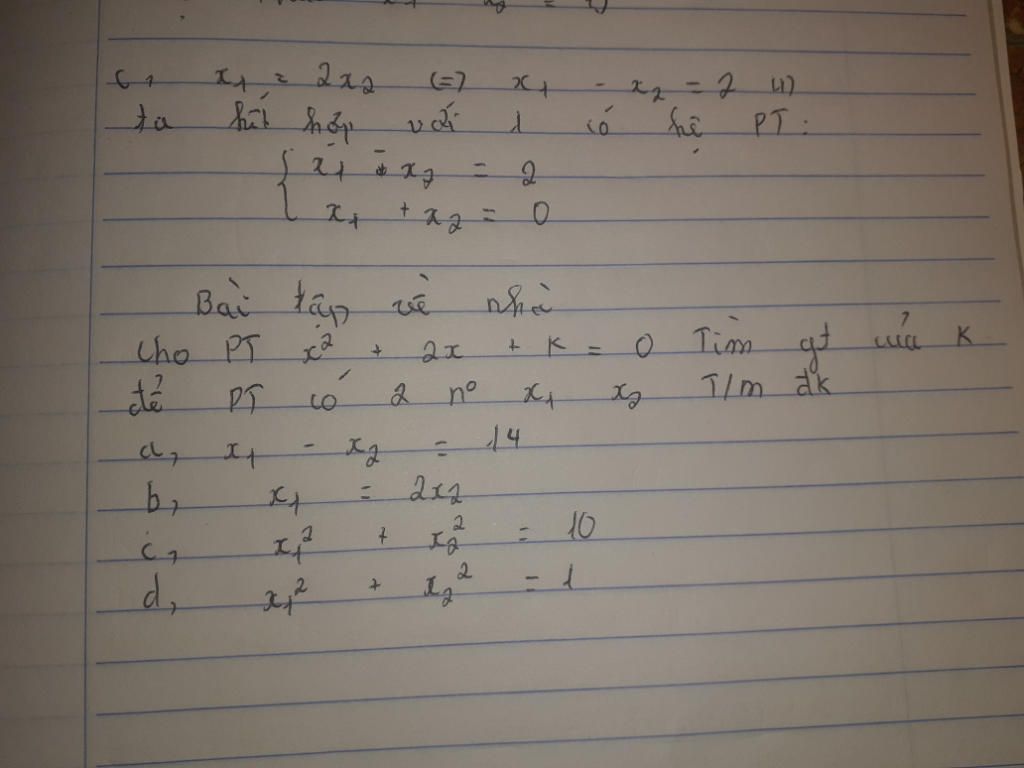 c, x₁ = 2x₂ (=) x₁ - x₂ = 2 (1)
ta kết hợp với 1 có hệ PT:
{ x₁ - x₂ = 2
x₁ + x₂ = 0
Bài tập về nhà
Cho PT x² + 2x + K = 0 Tìm gt của K
để PT có 2 nº x₁ x₂ T/m đk
a, x₁ - x₂ = 14
b, x₁ = 2x₂
c, x₁² + x₂² = 10
d, x₁² + x₂² = 1